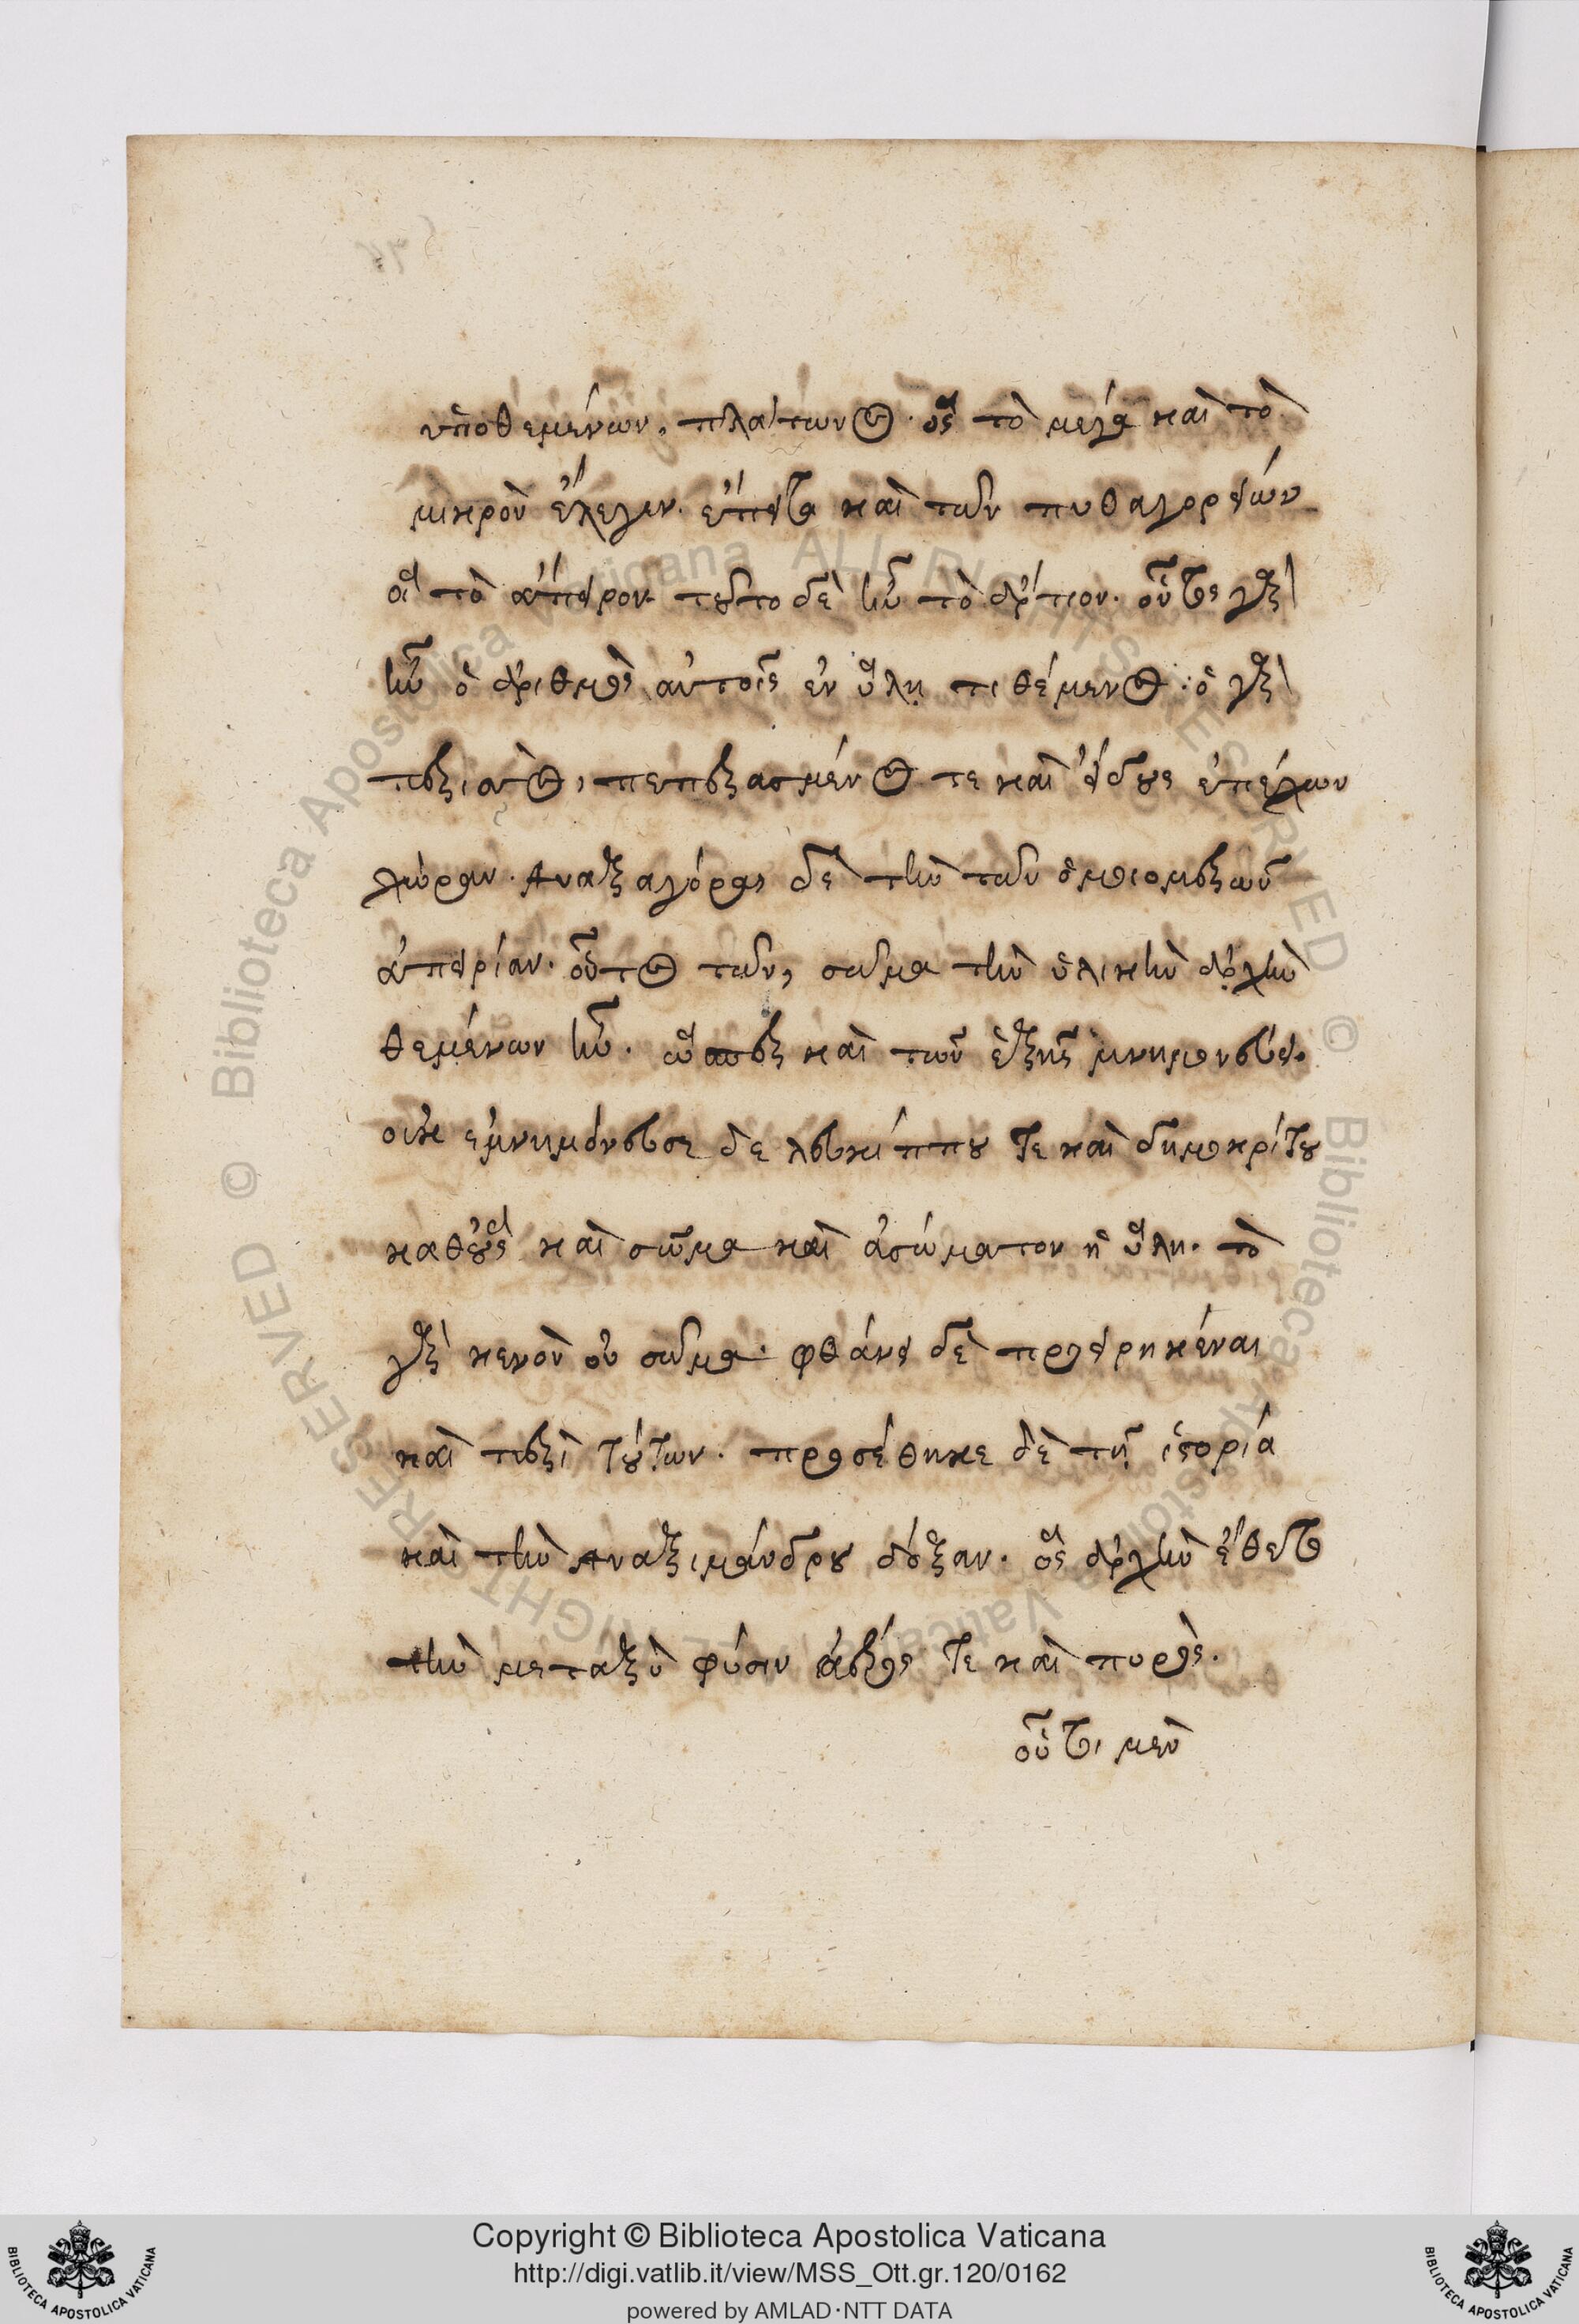 ὑποθεμένων, πλάτωνος. ὃς τὸ μέγα καὶ τὸ
μικρὸν ἔλεγεν. ἔπειτα καὶ τῶν πυθαγορείων
οἳ τὸ ἄπειρον. τοῦτο δὲ ἦν τὸ ἄρτιον. οὗτος γὰρ
ἦν ὁ ἀριθμὸς αὐτοῖς ἐν ὕλη τιθέμενος. ὁ γὰρ
περιττὸς, πεπερασμένος τε καὶ εἴδους ἐπέχων
χώραν. Ἀναξαγόρας δὲ τὴν τῶν ὁμοιομερῶν
ἀπειρίαν. οὗτος τῶν, σῶμα τὴν ὑλικὴν ἀρχὴν
θεμένων ἦν. ὥσπερ καὶ τῶν ἑξῆς μνημονεύει.
οὐκ ἐμνημόνευσε δε λευκίππου τε καὶ δημοκρίτου
καθ' οὓς καὶ σῶμα καὶ ἀσώματον ἡ ὕλη. τὸ
γὰρ κενὸν οὐ σῶμα. φθάνει δὲ προειρηκέναι
καὶ περὶ τούτων. προσέθηκε δὲ τῆ ἱστορία
καὶ τὴν Ἀναξιμάνδρου δόξαν. ὃς ἀρχὴν ἔθετο
τὴν μεταξὺ φύσιν ἀέρος τε καὶ πυρὸς.
οὗτοι μὲν
Copyright © Biblioteca Apostolica Vaticana
http://digi.vatlib.it/view/MSS_Ott.gr.120/0162
powered by AMLAD·NTT DATA
BIBLIOTECA APOSTOLICA VATICANA
BIBLIOTECA APOSTOLICA VATICANA
© Biblioteca Apostolica Vaticana ALL RIGHTS RESERVED
© Biblioteca Apostolica Vaticana ALL RIGHTS RESERVED